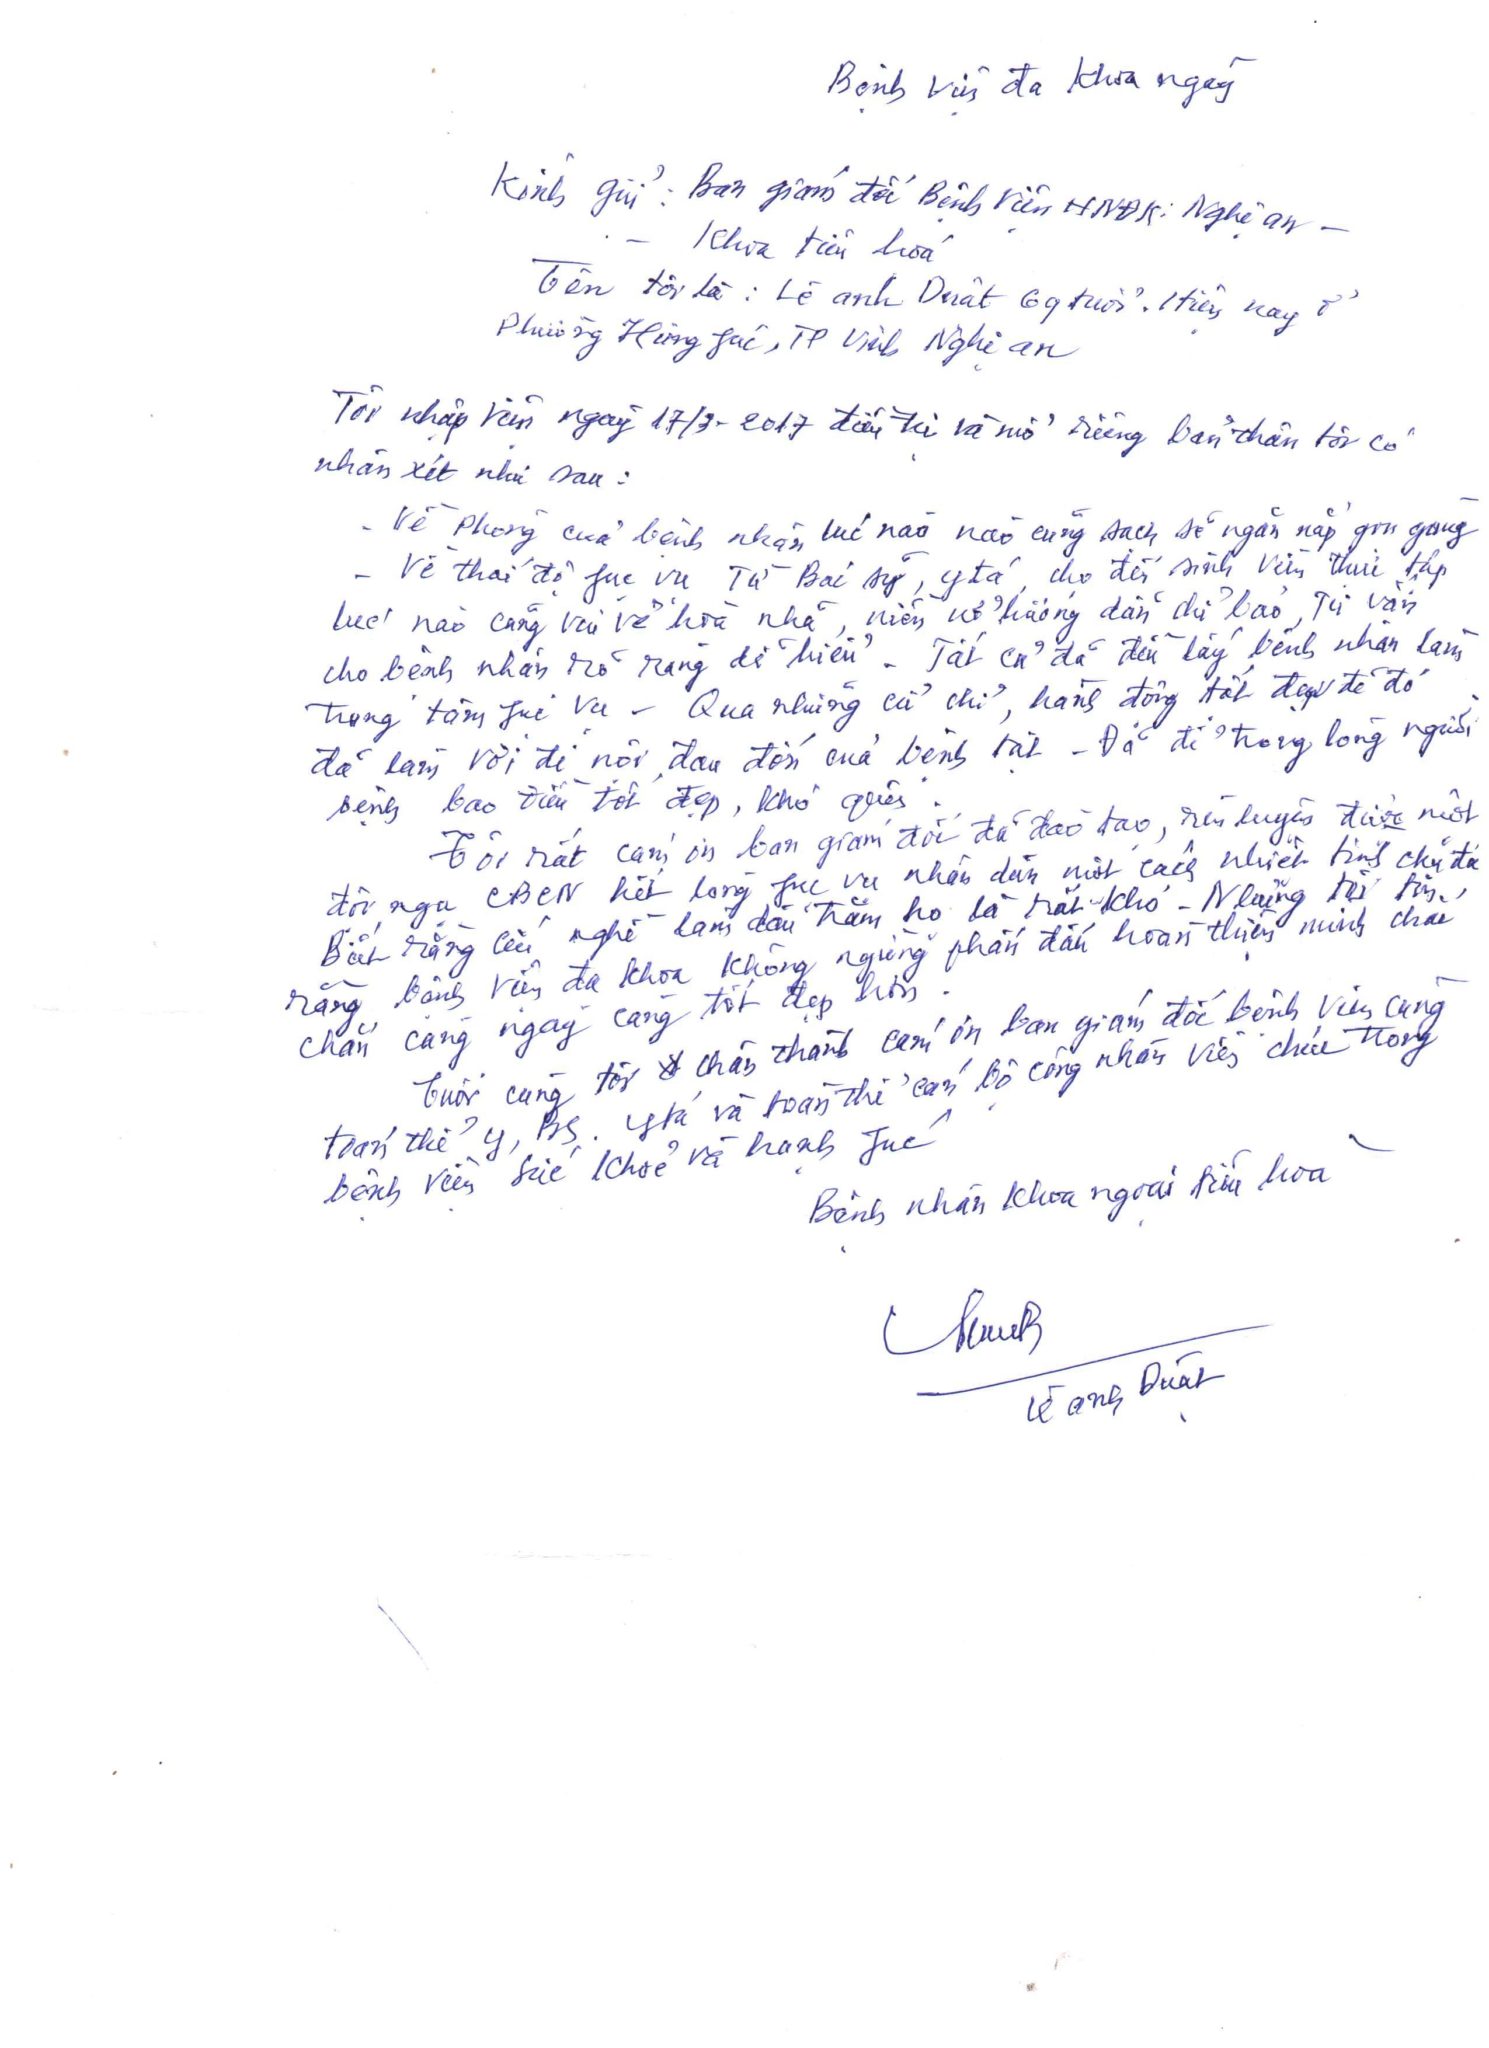 Bệnh viện đa khoa ngày
Kính gửi: Ban giám đốc Bệnh viện HNĐK Nghệ an –
– Khoa tiêu hoá
Tên tôi là: Lê anh Duật 69 tuổi. Hiện nay ở
Phường Hưng fúc, TP Vinh Nghệ an
Tôi nhập viện ngày 17/3-2017 điều trị và mổ riêng bản thân tôi có
nhân xét như sau:
- Về phòng của bệnh nhân lúc nào nào cũng sạch sẽ ngăn nắp gọn gàng
- Về thái độ fục vụ Từ Bác sỹ, y tá, cho đến sinh viên thực tập
lúc nào cũng vui vẻ hoà nhã, niềm nở hướng dẫn chỉ bảo, Tư vấn
cho bệnh nhân rõ ràng dễ hiểu - Tất cả đã đều lấy bệnh nhân làm
trung tâm fục vụ - Qua những cử chỉ, hành động tốt đẹp đẽ đó
đã làm vơi đi nỗi đau đớn của bệnh tật - Đã để trong lòng người
bệnh bao điều tốt đẹp, khó quên.
Tôi rất cảm ơn ban giám đốc đã đào tạo, rèn luyện được một
đội ngụ CBCN hết lòng fục vụ nhân dân một cách nhiệt tình chu đá
Biết rằng cái nghề làm dâu trăm họ là rất khó - Nhưng tôi tin
rằng bệnh viện đa khoa không ngừng phấn đấu hoàn thiện mình chắc
chắn càng ngày càng tốt đẹp hơn.
Cuối cùng tôi chân thành cảm ơn ban giám đốc bệnh viện cùng
toàn thể y, BS. y tá và toàn thể cán bộ công nhân viên chức trong
bệnh viện sức khoẻ và hạnh fúc
Bệnh nhân khoa ngoại tiêu hoà
Lê anh Duật